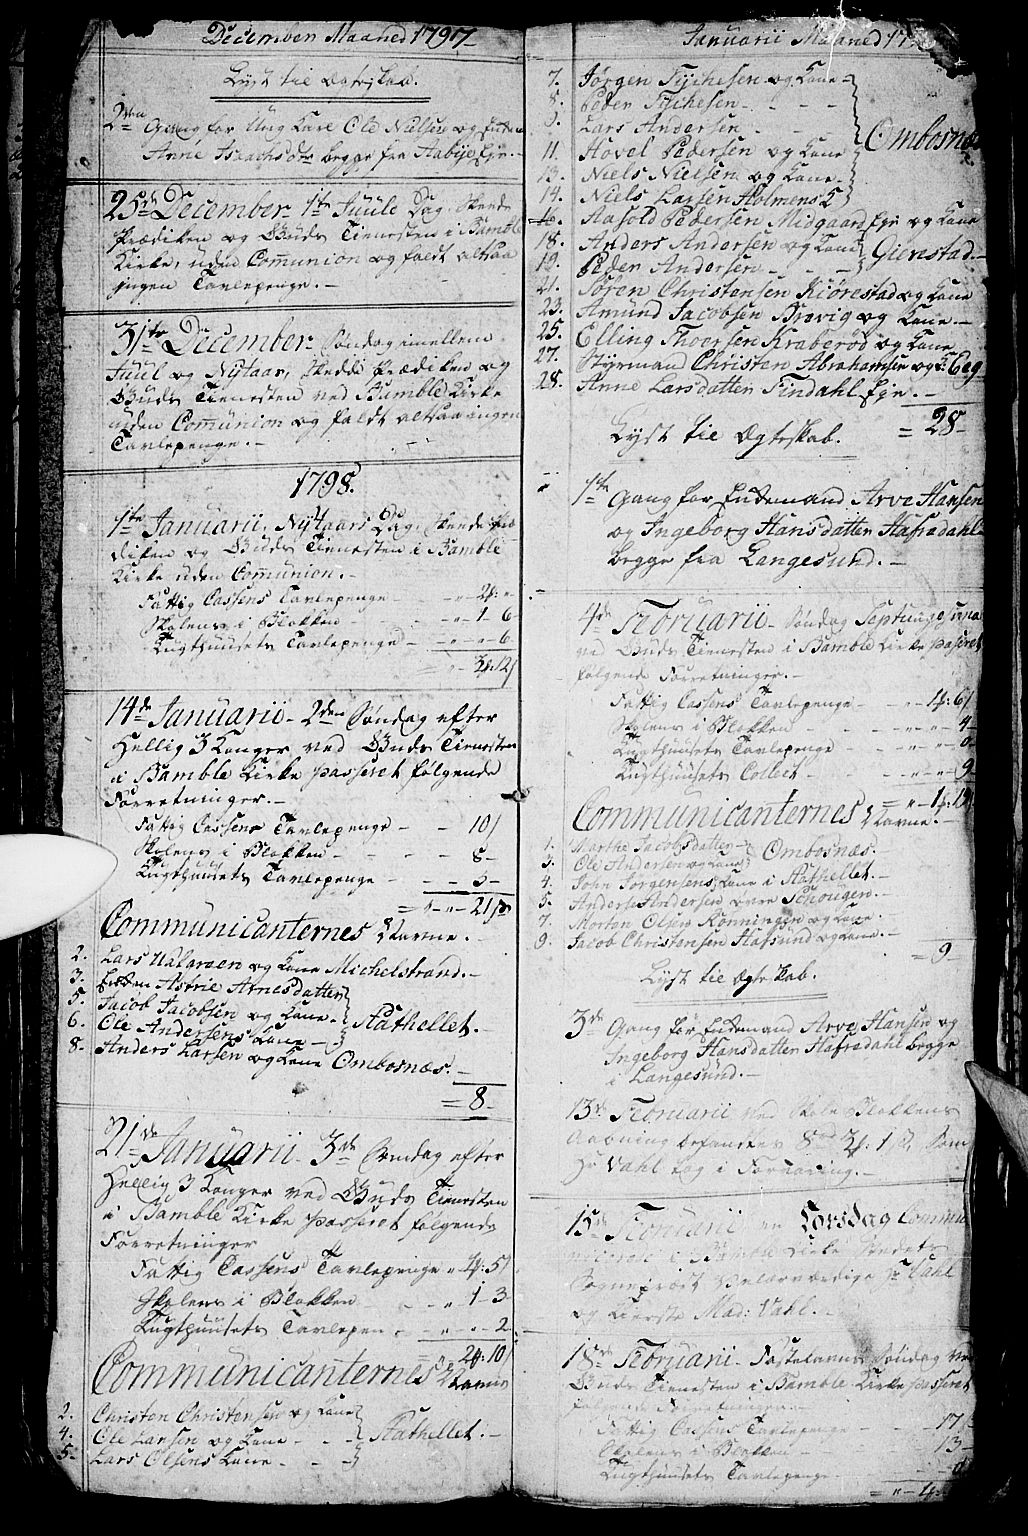 December Maaned 1797
Lyst til Ægteskab.
2den Gang for Ung Karl Ole Nielsen og Enken
Anne Isachsdr begge fra Aabye Eje. -
25de December 1ste Juule Dag, skeede
Prædiken og Guds Tienesten i Bamble
Kirke, uden Communion og faldt altsaa
ingen Tavlepenge. -
31te December Søndag imellem
Juul og Nytaar, skedde Prædiken og
Guds Tienesten ved Bamble Kirke
uden Communion og faldt altsaa ingen
Tavlepenge. -
1798.
1te Januarii, Nytaars Dag, skeede Præ-
diken og Guds Tienesten i Bamble
Kirke uden Communion. -
Fattig Cassens Tavlepenge - 2
Skolens i Blokken - 1 - 6
Tugthuusets Tavlepenge - 6
14de Januarii - 2den Søndag efter
Hellig 3 Konger ved Guds Tienesten
i Bamble Kirke passeret følgende
Forretninger. -
Fattig Cassens Tavlepenge - 10
Skolens i Blokken - 8 -
Tugthuusets Tavlepenge - 3 -
= 21
Communicanternes Navne.
2. Lars og Kone Michelstrand. -
3. Enken Astrie Arnesdatter
5. Jacob Jacobsen og Kone -
6. Ole Andersens Kone - Stathellet. -
8. Anders Larsen og Kone Ombosnæs. -
= 8 -
21de Januarii - 3de Søndag efter
Hellig 3 Konger ved Guds Tienesten
i Bamble Kirke passeret følgende
Forretninger
Fattig Cassens Tavlepenge 2 : 5
Skolens i Blokken 1 - 3
Tugthuusets Tavlepen - 2
2 : 10
Communicanternes Navne
2. Christen Christensen og Kone
4. Ole Larsen og Kone - Stathellet. -
5. Lars Olsens Kone -
Januarii Maaned 17
7. Jørgen Tychesen og Kone
8. Peder Tychesen -
9. Lars Andersen - Ombosnæs
11. Hovel Pedersen og Kone
13. Niels Nielsen og Kone
14. Niels Larsen Holmens
Aasold Pedersen Midgaard Eje og Kone
18. Anders Andersen og Kone
19. Peder Andersen - Gienstad. -
21. Søren Christensen Kiørestad og Kone
23. Amund Jacobsen Brevig og Kone. -
25. Elling Thoersen Kraberød og Kone
27. Styrmand Christen Abrahamsen og K: Eeg
28. Anne Larsdatter Findahl Eje. -
= 28 -
Lyst til Ægteskab.
1te Gang for Enkemand Arve Hansen
og Ingeborg Hansdatter Hafredahl
begge fra Langesund. -
4de Februarii - Søndag Septuagesima
ved Guds Tienesten i Bamble Kirke passeret
følgende Forretninger. -
Fattig Cassens Tavlepenge - 1 : 6
Skolens i Blokken - 4 -
Tugthuusets Tavlepenge - 0 -
Tugthuusets Collect - 9
Communicanternes Navne. -
1. Marthe Jacobsdatter -
3. Ole Andersen og Kone Ombosnæs. -
4. John Jørgensens Kone i Stathellet. -
5. Anders Andersen Schougen. -
7. Morten Olsen Rønningen og Kone. -
9. Jacob Christensen Hafsund og Kone. -
= 9 -
Lyst til Ægteskab.
3de Gang for Enkemand Arve Hansen og
Ingeborg Hansdatter Hafredahl begge
i Langesund. -
13de Februarii ved Skole Blokkens
Aabning befandtes som
Hr Vahl tog i Forvaring. -
15de Februarii en Torsdag Commu-
i Bamble Kirke
Sognepræst Velærværdige Hr Vahl
og Kierste Mad: Vahl. -
18de Februarii - Fastelavns Søndag ved
Guds Tienesten i Bamble Kirke passeret
følgende Forretninger. -
Fattig Cassens Tavlepenge - 17
Skolens i Blokken - 13
Tugthuusets Tavlepenge -